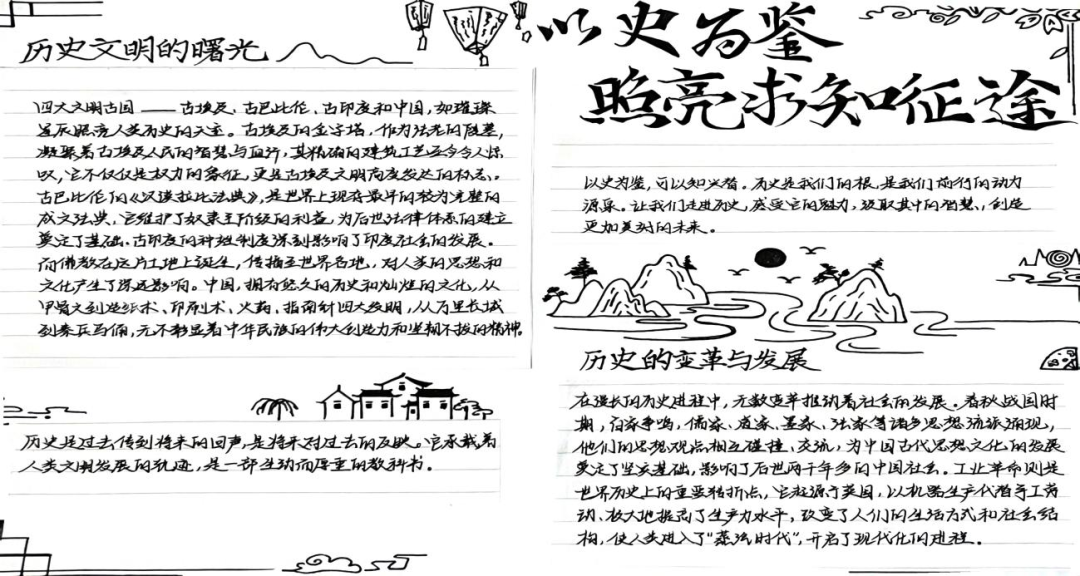 以史为鉴
照亮求知征途
历史文明的曙光
四大文明古国——古埃及、古巴比伦、古印度和中国,如璀璨
星辰照亮人类历史的天空。古埃及的金字塔,作为法老的陵墓,
凝聚着古埃及人民的智慧与血汗,其精确的建筑工艺至今令人惊
叹,它不仅仅是权力的象征,更是古埃及文明高度发达的标志。
古巴比伦的《汉谟拉比法典》,是世界上现存最早的较为完整的
成文法典,它维护了奴隶主阶级的利益,为后世法律体系的建立
奠定了基础。古印度的种姓制度深刻影响了印度社会的发展。
而佛教在这片土地上诞生,传播至世界各地,对人类的思想和
文化产生了深远影响。中国,拥有悠久的历史和灿烂的文化,从
甲骨文到造纸术、印刷术、火药、指南针四大发明,从万里长城
到秦兵马俑,无不彰显着中华民族的伟大创造力和坚韧不拔的精神。
历史是过去传到将来的回声,是将来对过去的反映。它承载着
人类文明发展的轨迹,是一部生动而厚重的教科书。
以史为鉴,可以知兴替。历史是我们的根,是我们前行的动力
源泉。让我们走进历史,感受它的魅力,汲取其中的智慧,创造
更加美好的未来。
历史的变革与发展
在漫长的历史进程中,无数变革推动着社会的发展。春秋战国时
期,百家争鸣,儒家、道家、墨家、法家等诸多思想流派涌现,
他们的思想观点相互碰撞、交流,为中国古代思想文化的发展
奠定了坚实基础,影响了后世两千年多的中国社会。工业革命则是
世界历史上的重要转折点,它起源于英国,以机器生产代替手工劳
动、极大地提高了生产力水平,改变了人们的生活方式和社会结
构,使人类进入了“蒸汽时代”,开启了现代化的进程。